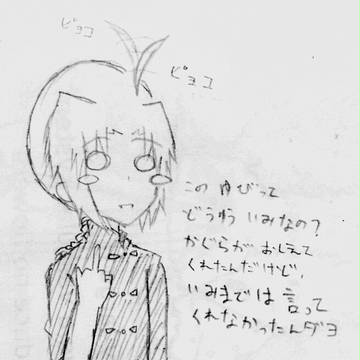 ピョコ
ピョコ
この ゆびって
どうゆう いみなの?
かぐらが おしえて
くれたんだけど、
いみまでは 言って
くれなかったんダヨ